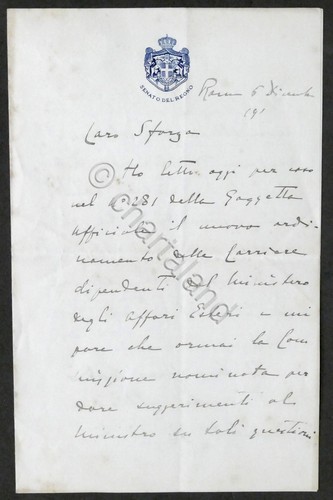 SENATO DEL REGNO
Roma 6 Dicembre
191
Caro Sforza
Ho letto oggi per caso
nel n. 281 della Gazzetta
Ufficiale il nuovo ordi-
namento delle Carriere
dipendenti del Ministero
degli Affari Esteri e mi
pare che ormai la Com
missione nominata per
dare suggerimenti al
Ministro su tali questioni
© chartaland